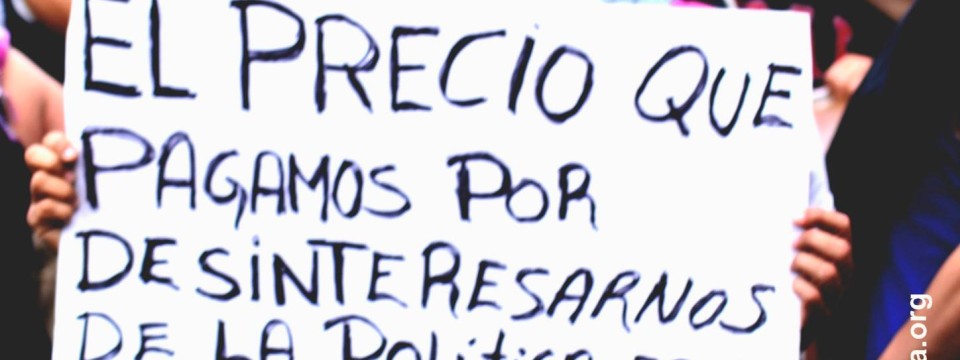 EL PRECIO QUE
PAGAMOS POR
DESINTERESARNOS
DE LA Política
a.org